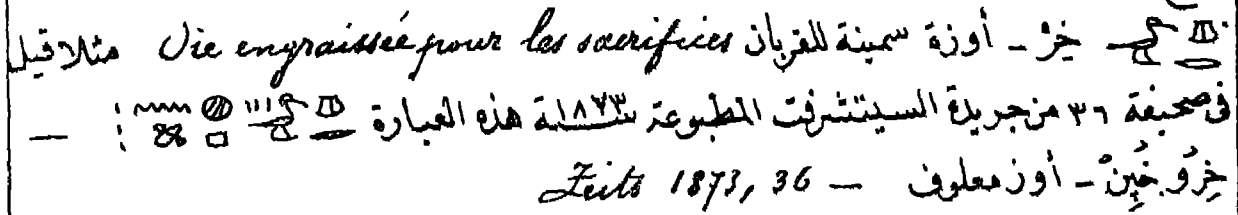 خِرْ - أوزة سمينة للقربان Oie engraissée pour les sacrifices مثلا قيل
فى صحيفة ٣٦ من جريدة السيتتشرفت المطبوعة سنة ١٨٧٣ هذه العبارة : —
خِرُو خُپِنْ - أوز معلوف — Zeits 1873, 36